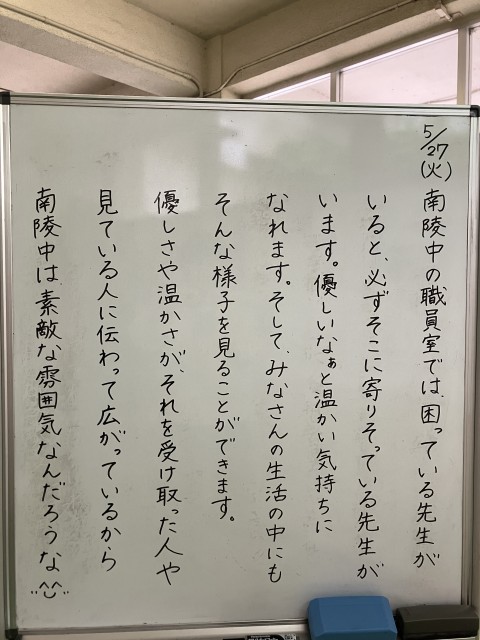 5/27(火)
南陵中の職員室では、困っている先生が
いると、必ずそこに寄りそっている先生が
います。優しいなぁと温かい気持ちに
なれます。そして、みなさんの生活の中にも
そんな様子を見ることができます。
優しさや温かさが、それを受け取った人や
見ている人に伝わって広がっているから
南陵中は、素敵な雰囲気なんだろうな^^